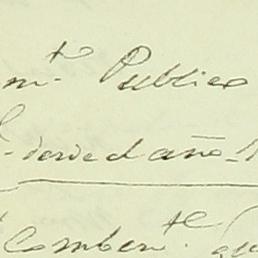 m.to Publico
desde el año
Comben.te